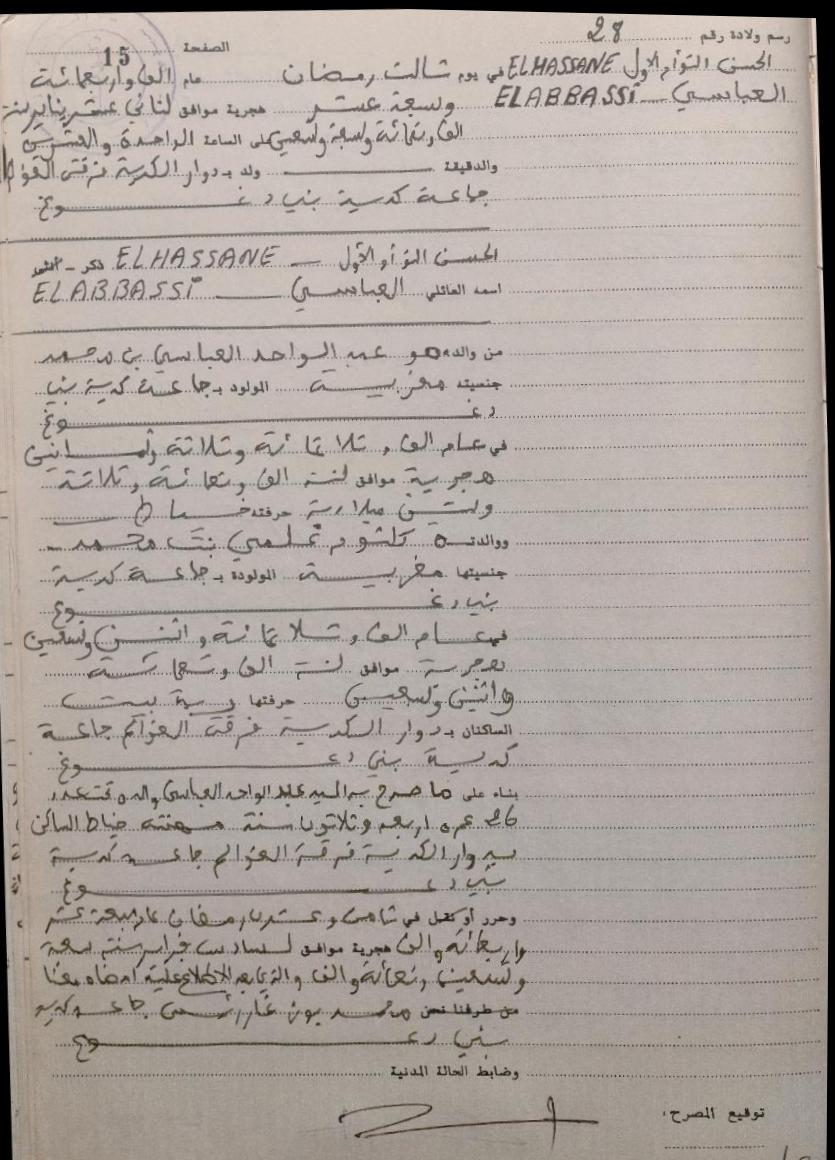 رسم ولادة رقم 28
الصفحة 15
الحسن التوأم الاول ELHASSANE في يوم ثالث رمضان عام الف واربعمائة
العباسي ELABBASSi وتسعة عشر هجرية موافق لثاني عشر يناير سنة
الف وتسعمائة وتسعة وتسعين على الساعة الواحدة والعشرين
والدقيقة ولد بـ دوار الكدية فرقة
جماعة كدية بني دغوغ
الحسن التوأم الأول ELHASSANE ذكر -
اسمه العائلي العباسي ELABBASSi
من والده هو عبد الواحد العباسي بن محمد
جنسيته مغربية المولود بـ جماعة كدية بني
دغوغ
في عام الف وثلاثمائة وثلاثة وثمانين
هجرية موافق لسنة الف وتسعمائة وثلاثة
وستين ميلادية حرفته خياط
ووالدته كلثوم علمي بنت محمد
جنسيتها مغربية المولودة بـ جماعة كدية
بني دغوغ
في عام الف وثلاثمائة واثنين وتسعين
هجرية موافق لسنة الف وتسعمائة
واثنين وسبعين حرفتها ربة بيت
الساكنان بـ دوار الكدية فرقة العوالم جماعة
كدية بني دغوغ
بناء على ما صرح به السيد عبد الواحد العباسي والده
عمره اربعة وثلاثون سنة مهنته خياط الساكن
بدوار الكدية فرقة العوالم جماعة كدية
بني دغوغ
وحرر أو نقل في ثامن وعشرين رمضان عام تسعة عشر
واربعمائة والف هجرية موافق لسادس فبراير سنة تسعة
وتسعين وتسعمائة والف والذي بعد الاطلاع عليه امضاه معنا
من طرفنا نحن محمد جماعة كدية
بني دغوغ
وضابط الحالة المدنية
توقيع المصرح: